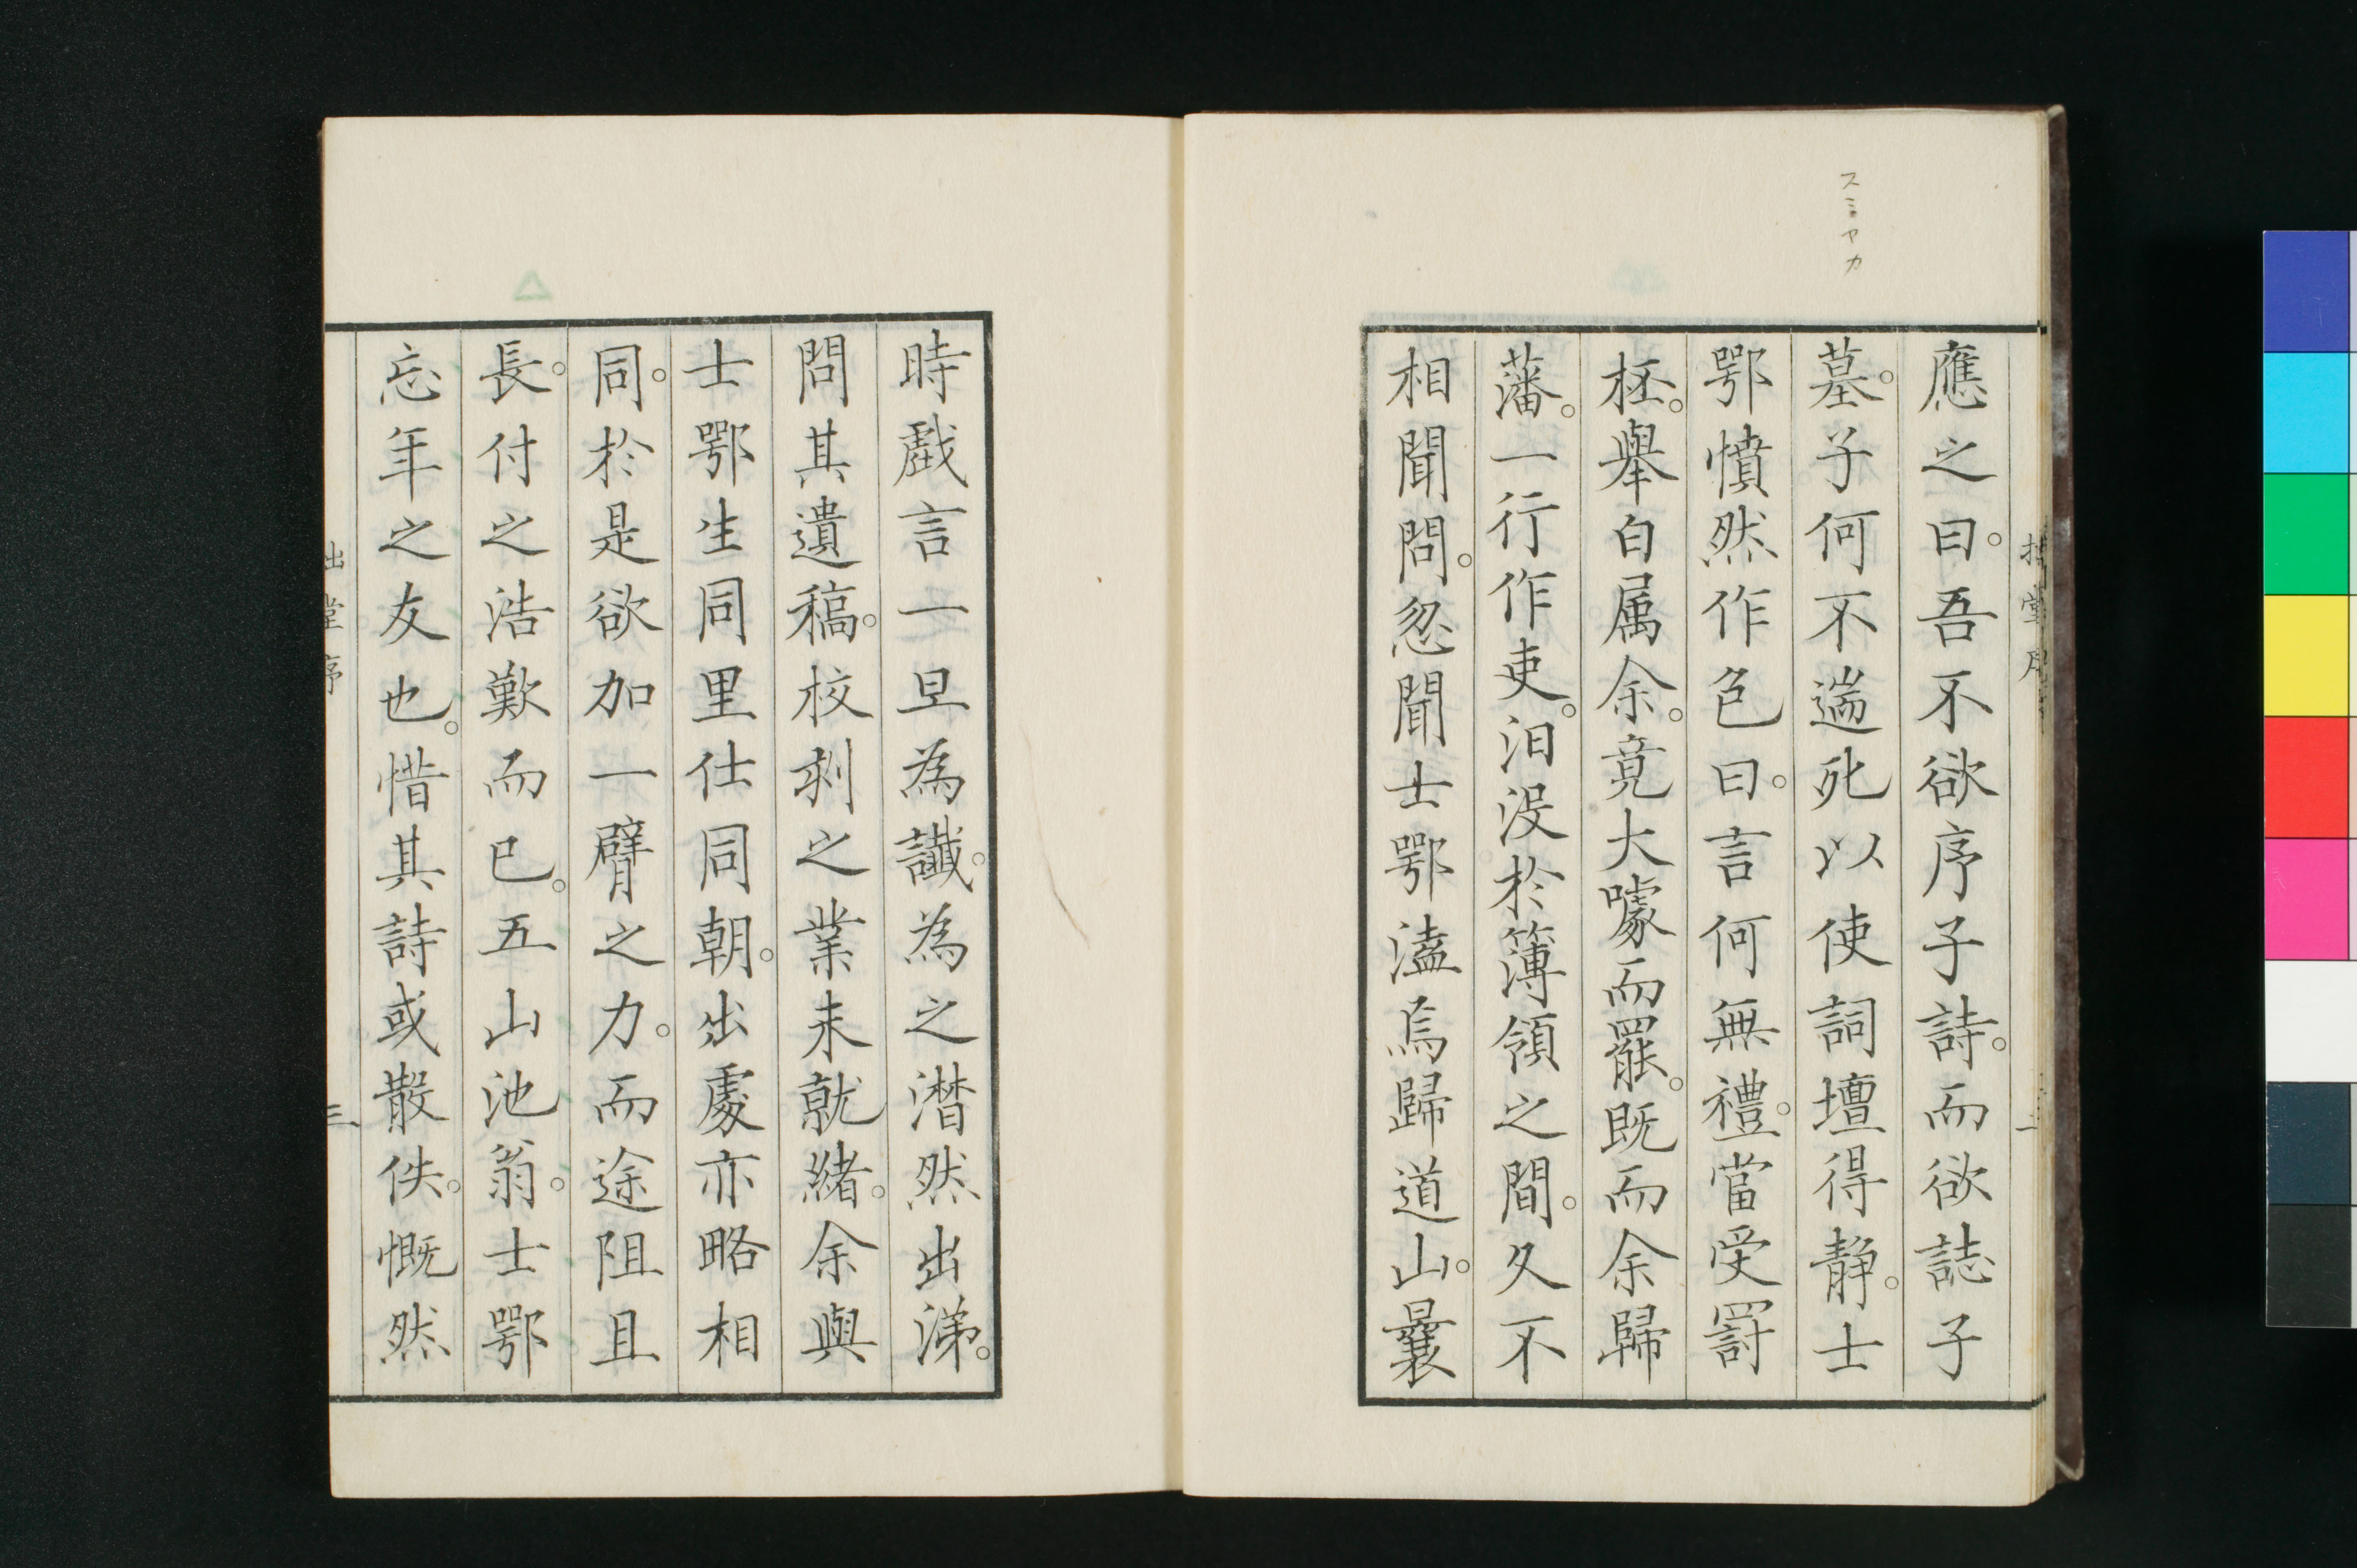 スミヤカ
應之曰。吾不欲序子詩。而欲誌子
墓。子何不遄死以使詞壇得静。士
鄂憤然作色曰。言何無禮。當受罰
柸。舉白属余。竟大噱而罷。既而余歸
藩。一行作吏。汨没於簿領之間。久不
相聞問。忽聞士鄂溘焉歸道山。曩
時戲言一旦為讖。為之潸然出涕。
問其遺稿。校剥之業未就緒。余與
士鄂生同里仕同朝。出處亦略相
同。於是欲加一臂之力。而途阻且
長。付之浩歎而已。五山池翁。士鄂
忘年之友也。惜其詩或散佚。慨然
堂序
三